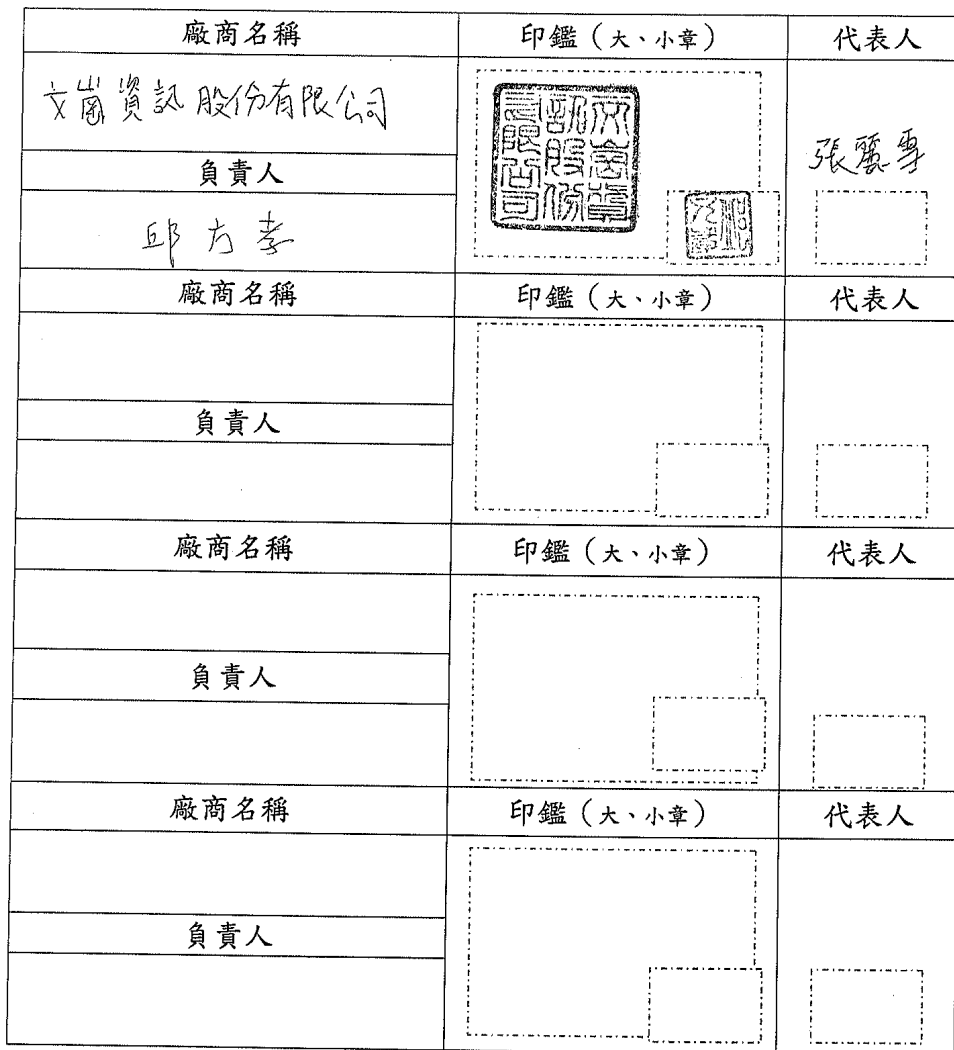 廠商名稱 印鑑(大、小章) 代表人
文崗資訊股份有限公司
張麗專
負責人
邱方孝
廠商名稱 印鑑(大、小章) 代表人
負責人
廠商名稱 印鑑(大、小章) 代表人
負責人
廠商名稱 印鑑(大、小章) 代表人
負責人